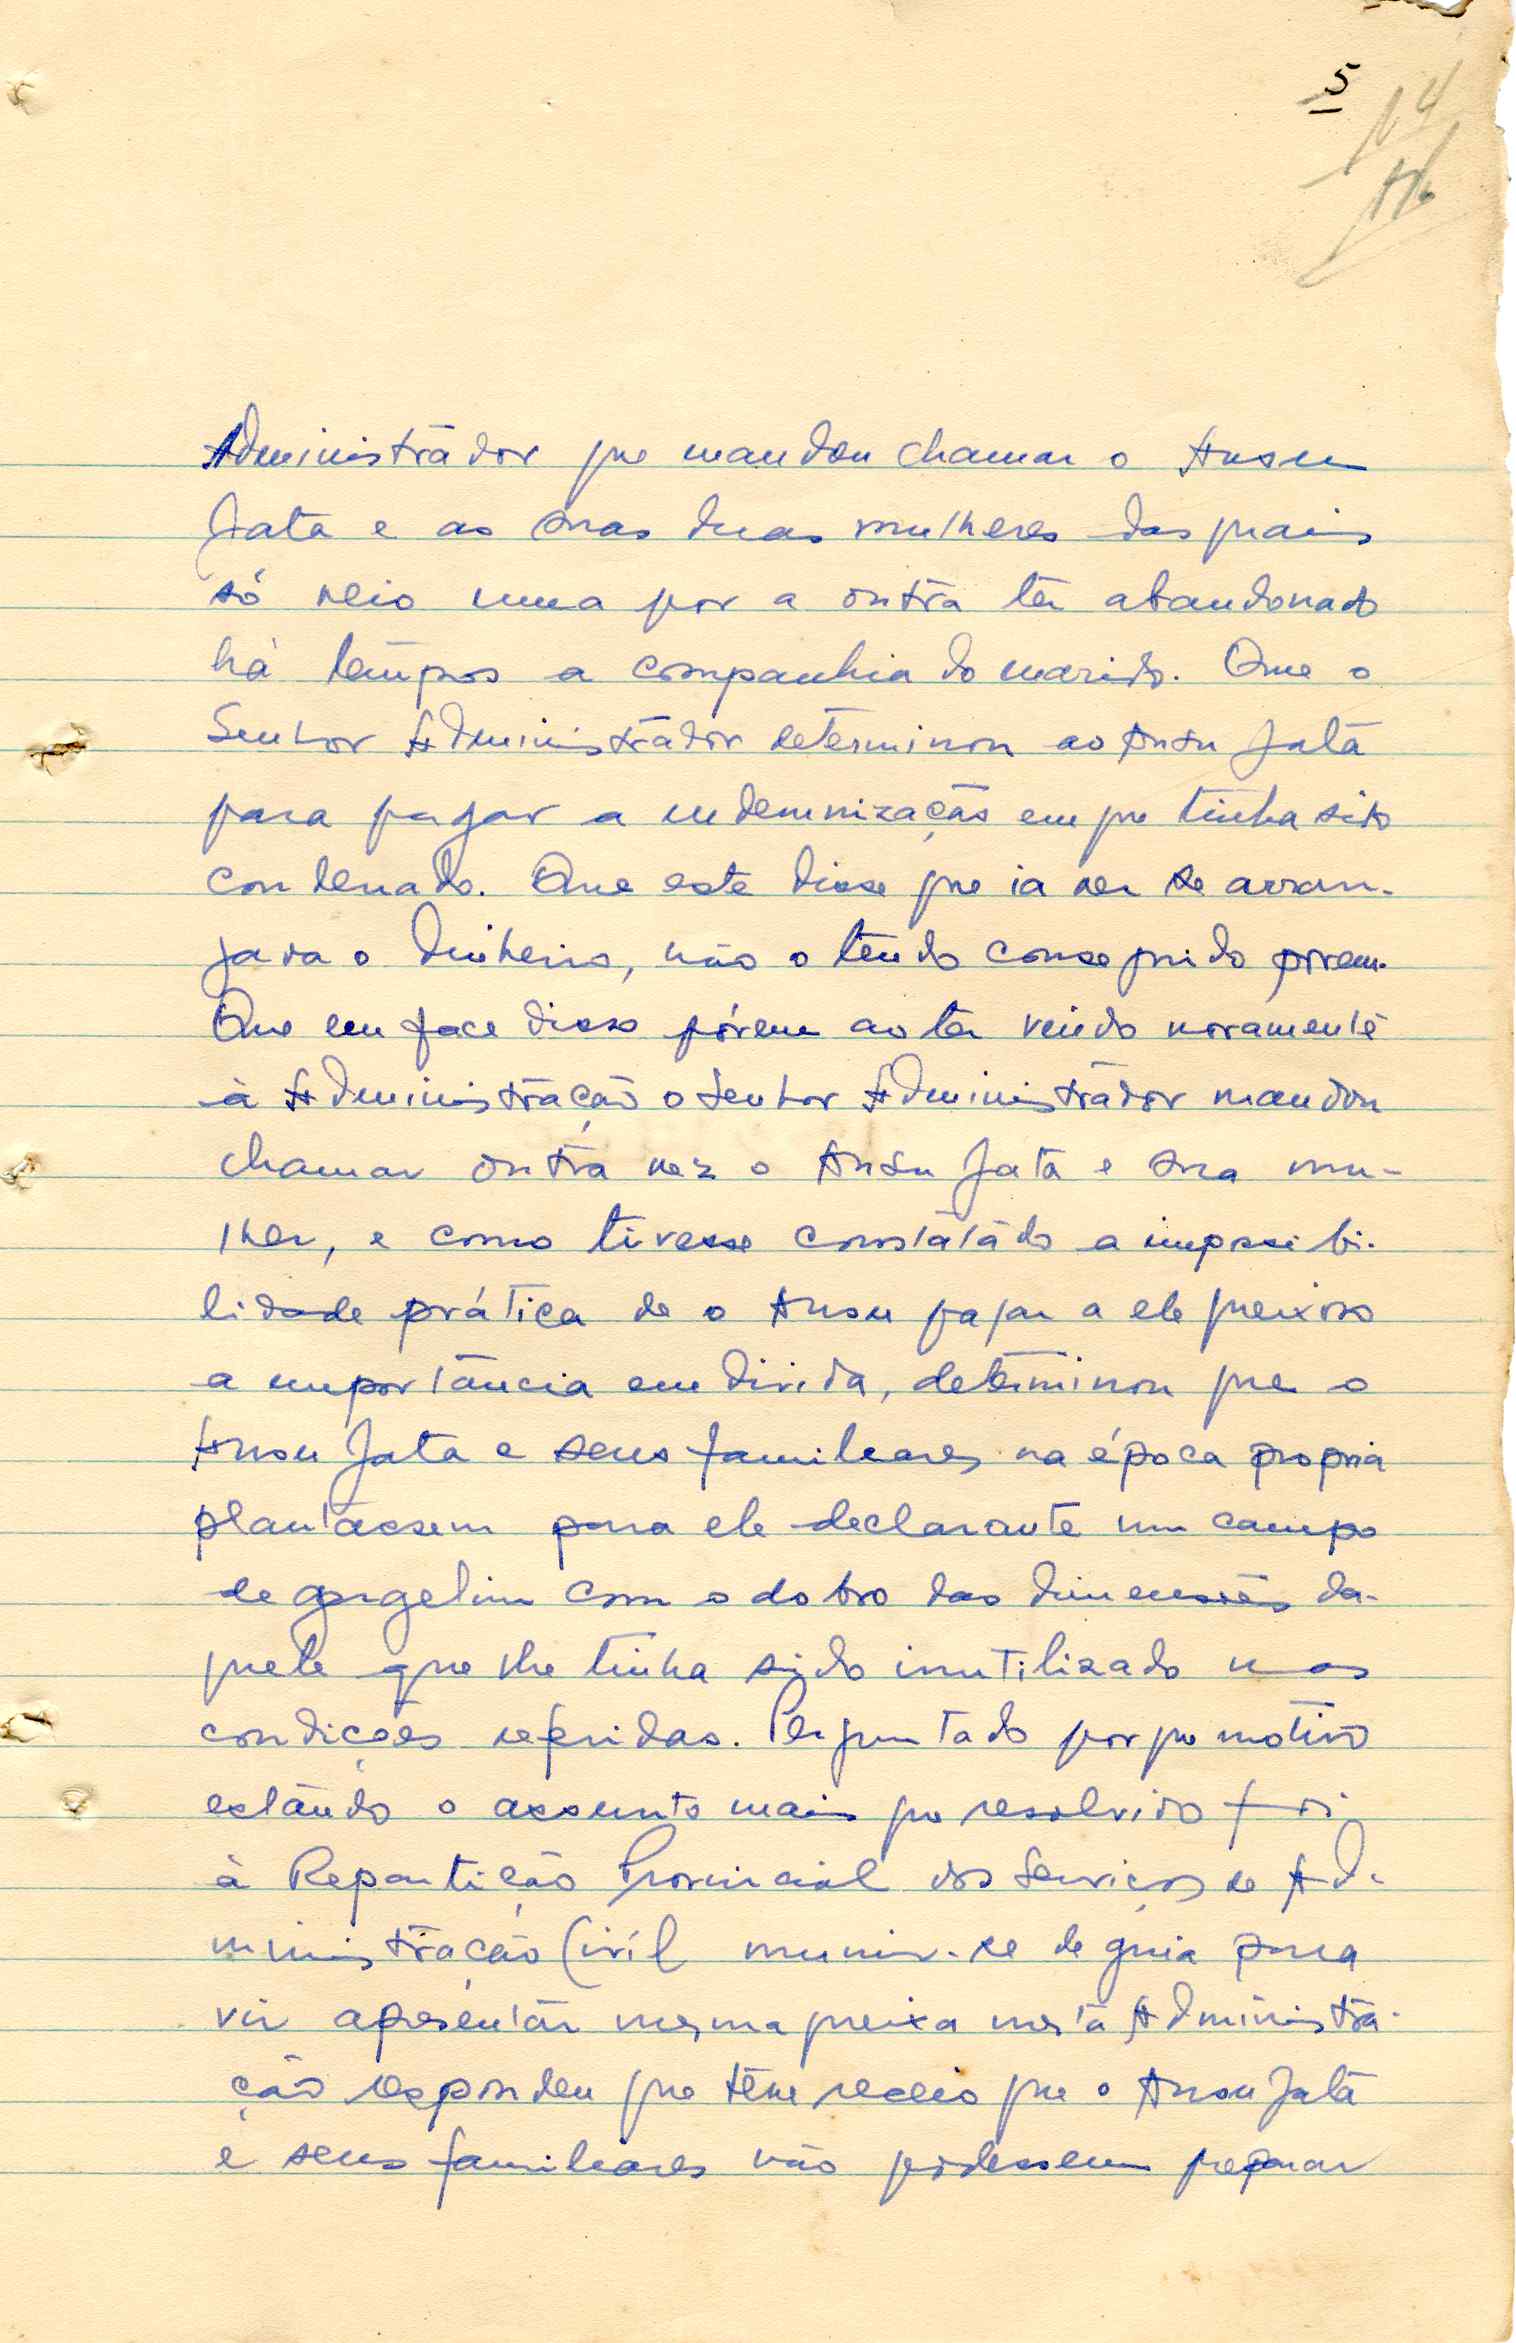 5
14
Administrador que mandou chamar o Ansu
Jatá e as suas duas mulheres das quais
só veio uma por a outra ter abandonado
há tempos a companhia do marido. Que o
Senhor Administrador determinou ao Ansu Jatá
para pagar a indemnização em que tinha sido
condenado. Que este disse que ia ver se arran-
java o dinheiro, não o tendo conseguido porem.
Que em face disso pórem ao ter vindo novamente
à Administração o Senhor Administrador mandou
chamar outra vez o Ansu Jatá e sua mu-
lher, e como tivesse constatado a impossibi-
lidade prática de o Ansu pagar a ele queixoso
a importância em divida, determinou que o
Ansu Jatá e seus familiares na época propria
plantassem para ele declarante um campo
de gergelim com o dobro das dimensões da-
quele que lhe tinha sido inutilizado nas
condições referidas. Perguntado por que motivo
estando o assunto mais que resolvido foi
à Repartição Provincial dos Serviços de Ad-
ministração Civil munir-se de guia para
vir apresentar mesma queixa nesta Administra-
ção respondeu que têve receio que o Ansu Jatá
e seus familiares não podessem preparar